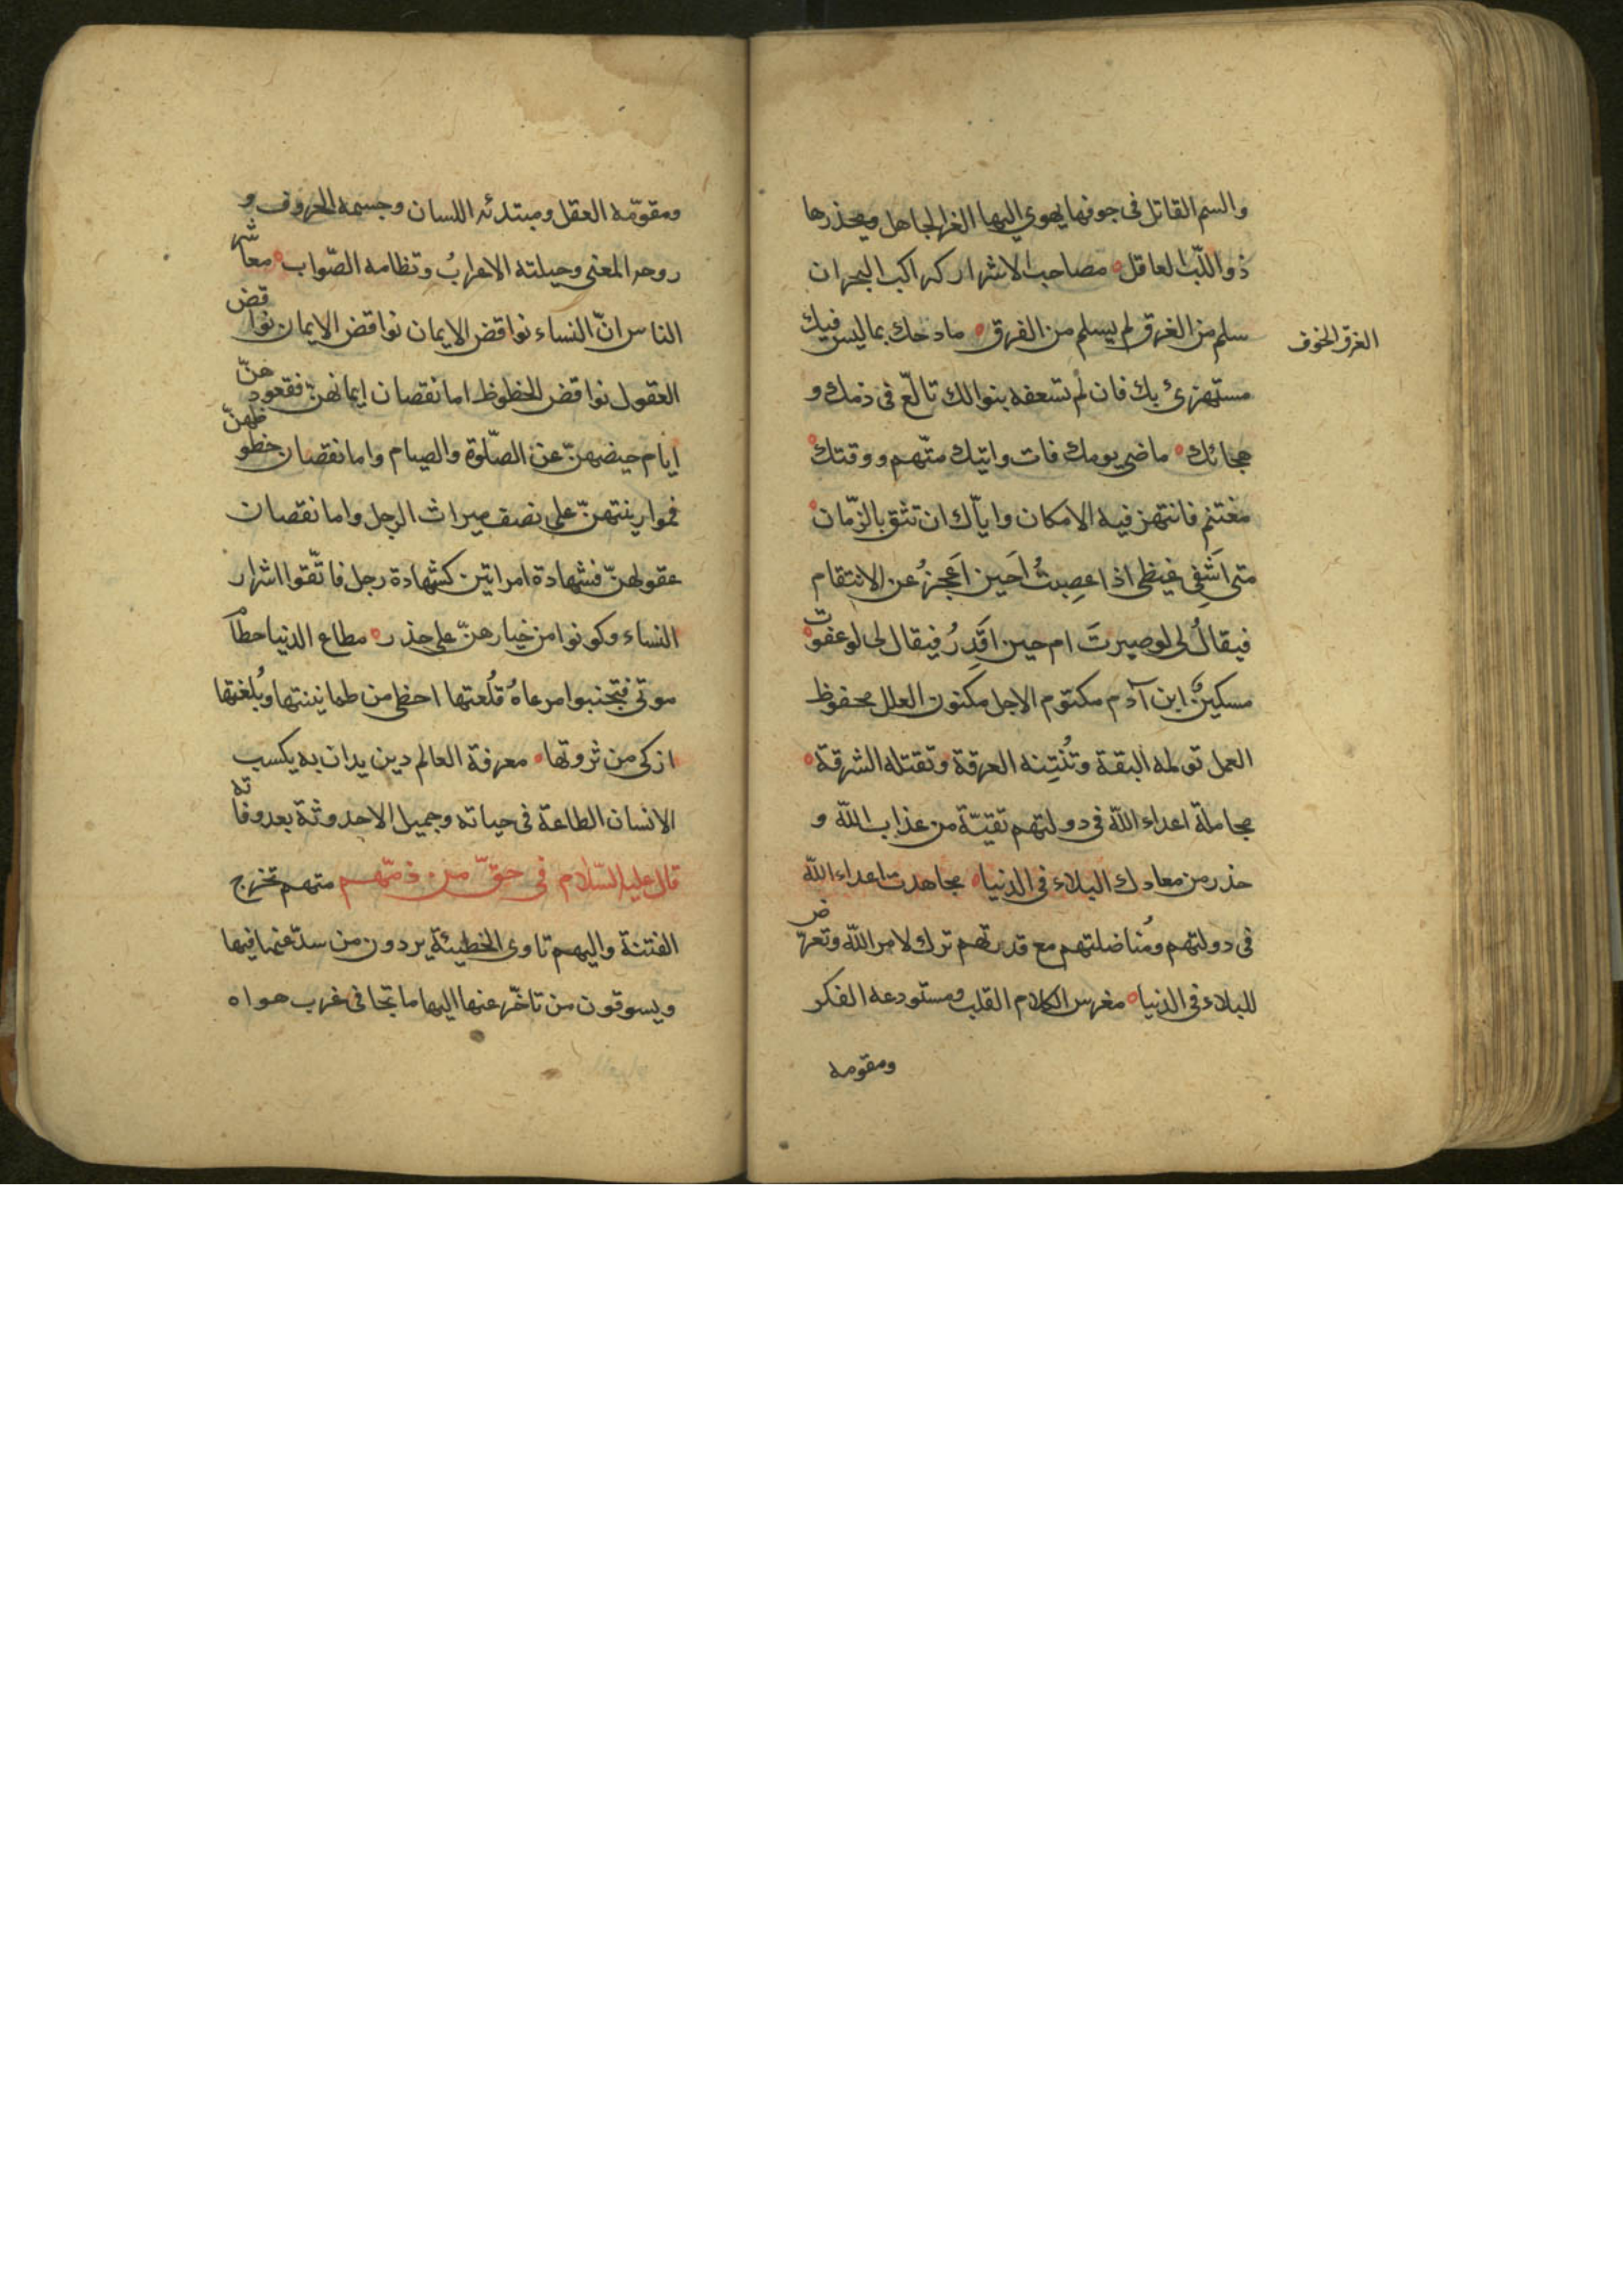 والسم القاتل فى جوفها يهوى اليها الغر الجاهل ويحذرها
ذو اللّب العاقل مصاحب الاشرار كراكب البحر ان
سلم من الغرق لم يسلم من الفرق مادحك بما ليس فيك
الفرق الخوف
مستهزئ بك فان لم تسعفه بنوالك بالغ فى ذمك و
هجائك ماضى يومك فات واتيك متّهم ووقتك
مغتنم فانتهز فيه الامكان وايّاك ان تثق بالزّمان
متى اَشفِى غيظى اذا غضِبتُ اَحين اَعجزُ عن الانتقام
فيقالُ لى لو صبرتَ ام حين اَقدِرُ فيقال لى لو عفوت
مسكينٌ ابن آدم مكتوم الاجل مكنون العلل محفوظ
العمل تولمه البقة وتُنتِنه العرقة وتقتله الشرقة
مجاملة اعداء اللّه فى دولتهم تقيّة من عذاب اللّه و
حذر من معارك البلاء فى الدنيا مجاهدت اعداء اللّه
فى دولتهم ومُناضلتهم مع قدرتهم ترك لامر اللّه وتعرّض
للبلاء فى الدنيا مغرس الكلام القلب ومستودعه الفكر
ومقومه
ومقوّمه العقل ومبتدئه اللسان وجسمه الحروف و
روحه المعنى وحيلته الاعرابُ ونظامه الصّواب معاشر
الناس انّ النساء نواقض الايمان نواقض الايمان نواقض
العقول نواقض الحظوظ اما نقصان ايمانهن فقعودهنّ
ايام حيضهنّ عن الصّلوة والصيام واما نقصان حظوظهنّ
فمواريثهنّ على نصف ميراث الرجل واما نقصان
عقولهنّ فشهادة امراتين كشهادة رجل فاتّقوا اشرار
النساء وكونوا من خيارهنّ على حذر مطاع الدنيا حطام
موتى فتجنبوا مرعاهُ قُلعتها احظى من طمانينتها وبُلغتها
ازكى من ثروتها معرفة العالم دين يدان به يكسب
الانسان الطاعة فى حياته وجميل الاحدوثة بعد وفاته
قال عليه السّلام فى حقّ من ذمّهم منهم تخرج
الفتنة واليهم تاوى الخطيئة يردون من سدّ عنها فيها
ويسوقون من تاخّر عنها اليها ما تجافى غرب هواه